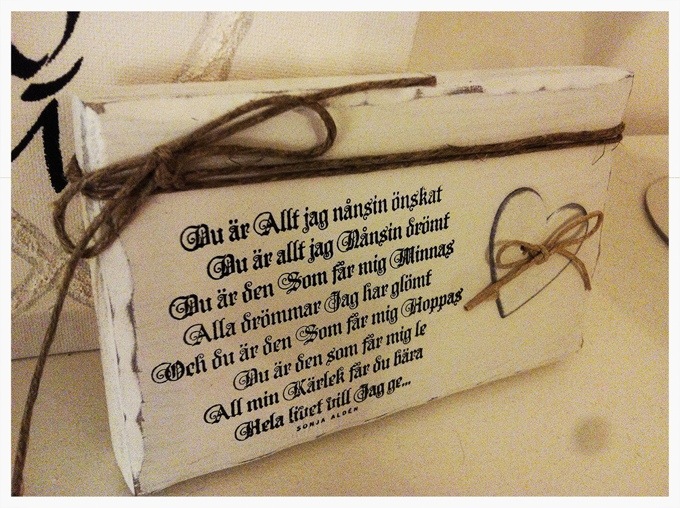 Du är Allt jag nånsin önskat
Du är allt jag Nånsin drömt
Du är den Som får mig Minnas
Alla drömmar Jag har glömt
Och du är den Som får mig Hoppas
Du är den som får mig le
All min Kärlek får du bära
Hela livet vill Jag ge...
SONJA ALDÉN